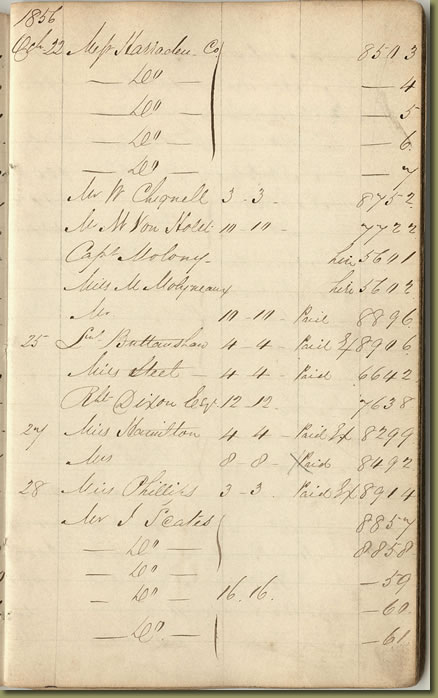 1856
Oct 22 Messrs Harraden Co 8503
— Do — — 4
— Do — — 5
— Do — — 6
— Do — — 7
Mr W Chignell 3 - 3 - 8752
M M Von Holst 10 - 10 - 7722
Capt Molony - hire 5601
Miss M Molyneaux hire 5602
Mr 10 - 10 - Paid 8896
25 Buttanshaw 4 - 4 - Paid Ex 8906
Miss Steet - 4 - 4 - Paid 6642
Rbt Dixon Esqr 12 - 12 7638
27 Miss Hamilton 4 - 4 - Paid Ex 8299
Mrs 8 - 8 - Paid 8492
28 Miss Phillips 3 - 3 Paid Ex 8914
Mr J Scates 8857
— Do — 8858
— Do — — 59
— Do — 16. 16. — 60
— Do — — 61